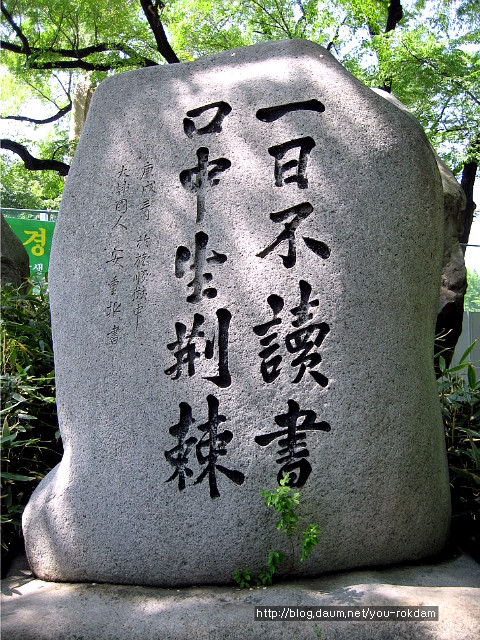 一日不讀書
口中生荊棘
庚戌三月 於旅順獄中
大韓國人 安重根 書
경
생
http://blog.daum.net/you-rokdam